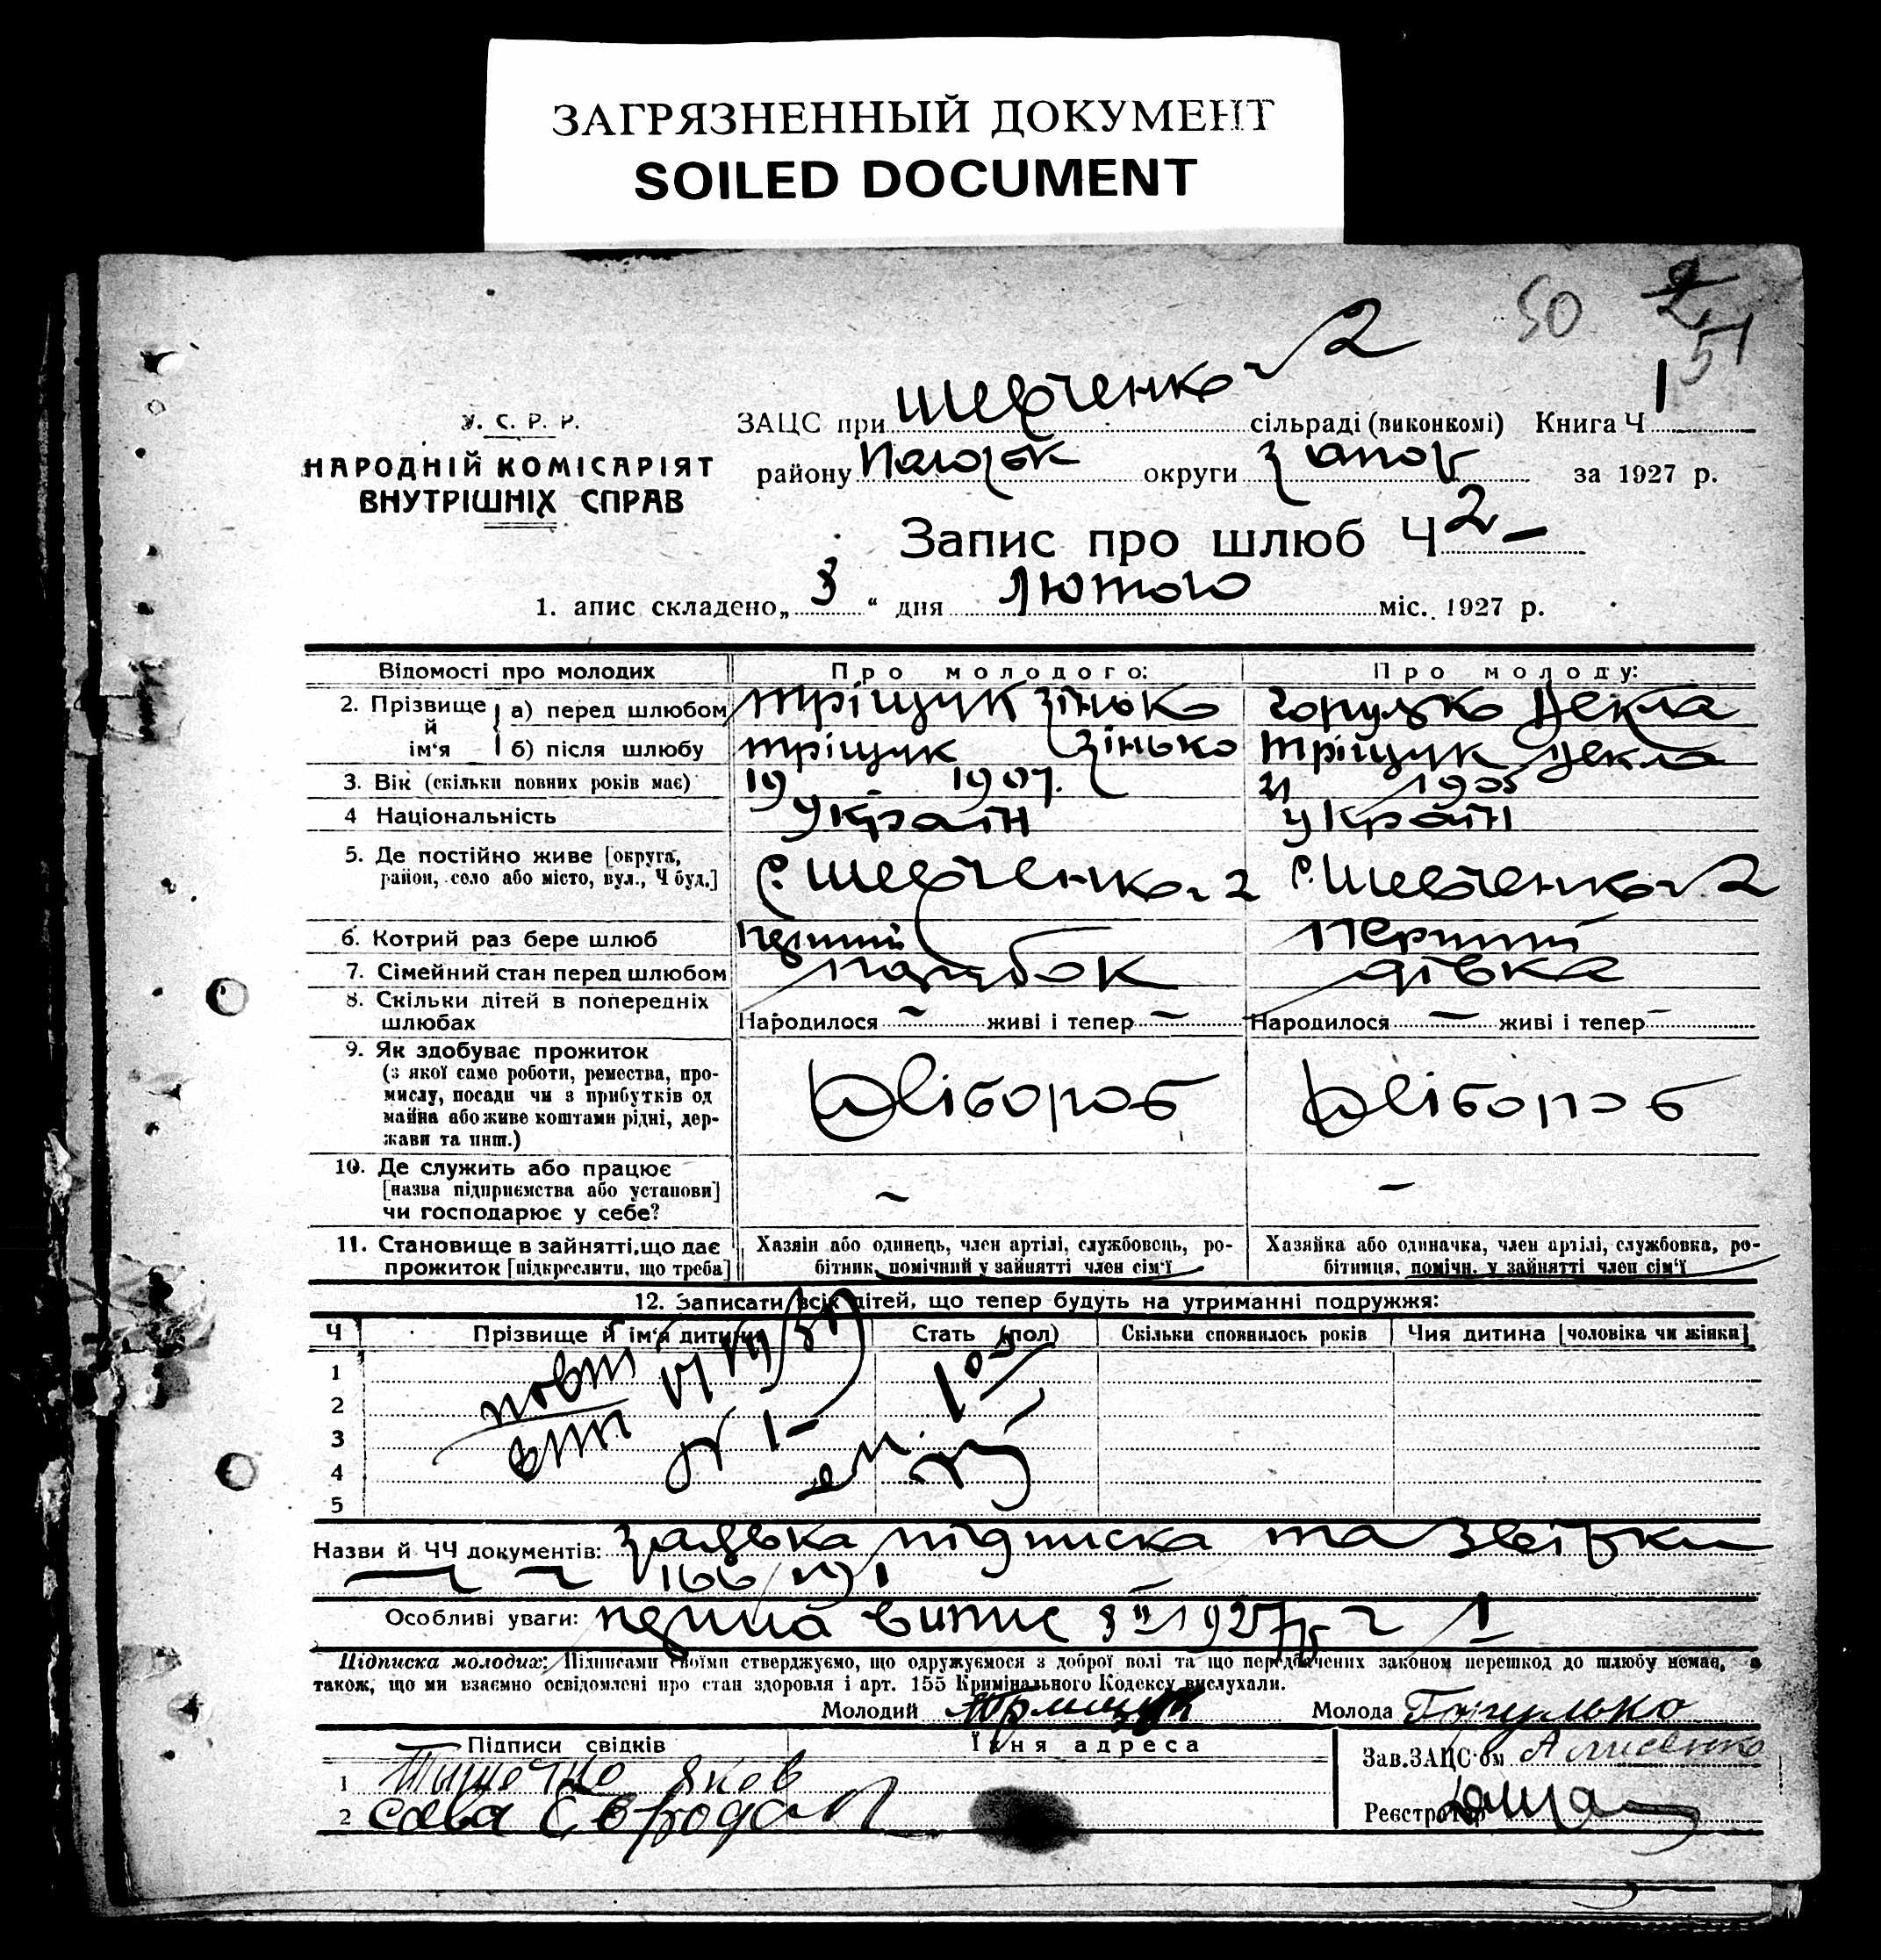 ЗАГРЯЗНЕННЫЙ ДОКУМЕНТ
SOILED DOCUMENT
50 2
51
У. С. Р. Р.
НАРОДНІЙ КОМІСАРІЯТ
ВНУТРІШНІХ СПРАВ
ЗАЦС при Шевченко №2 сільраді (виконкомі) Книга Ч 1
району округи Запор за 1927 р.
Запис про шлюб Ч 2 -
1. апис складено „ 3 “ дня Лютого міс. 1927 р.
Відомості про молодих Про молодого: Про молоду:
2. Прізвище й ім‘я а) перед шлюбом Тріщук Зінько Текла
б) після шлюбу Тріщук Зінько Тріщук Текла
3. Вік (скільки повних років має) 19 1907. 21 1905
4 Національність Україн Україн
5. Де постійно живе [округа,
район, село або місто, вул., Ч буд.] с. Шевченко №2 с. Шевченко №2
6. Котрий раз бере шлюб перший перший
7. Сімейний стан перед шлюбом парубок дівка
8. Скільки дітей в попередніх
шлюбах Народилося — живі і тепер — Народилося — живі і тепер —
9. Як здобуває прожиток
(з якої саме роботи, ремества, про-
мислу, посади чи з прибутків од
майна або живе коштами рідні, дер-
жави та инш.) Хлібороб Хлібороб
10. Де служить або працює
[назва підприємства або установи]
чи господарює у себе? — —
11. Становище в зайнятті, що дає
прожиток [підкреслити, що треба]
Хазяїн або одинець, член артілі, службовець, ро-
бітник, помічний у зайнятті член сім‘ї
Хазяйка або одиначка, член артілі, службовка, ро-
бітниця, помічн. у зайнятті член сім‘ї
12. Записати всіх дітей, що тепер будуть на утриманні подружжя:
Ч Прізвище й ім‘я дитини Стать (пол) Скільки сповнилось років Чия дитина [чоловіка чи жінки]
1
2
3
4
5
Назви й ЧЧ документів: заявка підписка та звірки
Особливі уваги: випис 1927 р 1
Підписка молодих: Підписами своїми стверджуємо, що одружуємося з доброї волі та що передбачених законом перешкод до шлюбу немає, а
також, що ми взаємно освідомлені про стан здоровля і арт. 155 Кримінального Кодексу вислухали.
Молодий Трищук Молода
Підписи свідків Їхня адреса Зав. ЗАЦС‘ом А Лисенко
1 Яков
2 Сава Реєстратор